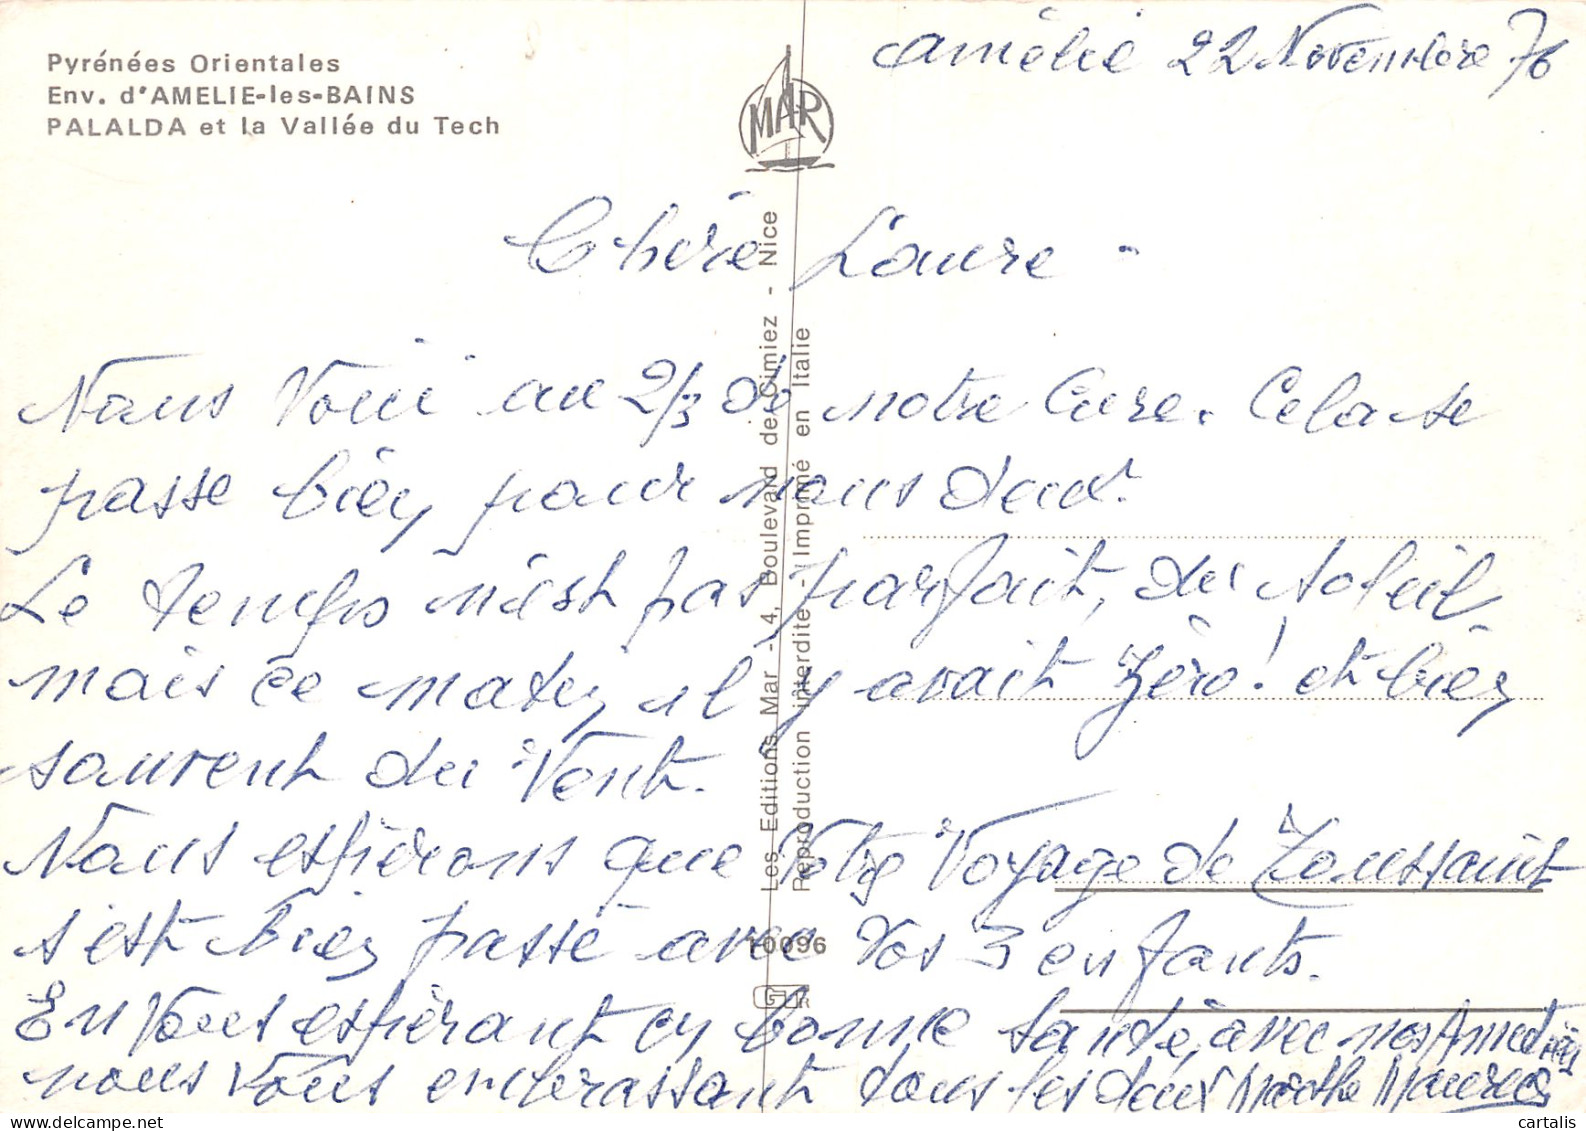 Pyrénées Orientales
Env. d'AMELIE-les-BAINS
PALALDA et la Vallée du Tech
MAR
Amélie 22 Novembre 76
Chère Laure -
Nous Voici au 2/3 de notre Cure. Cela se
passe bien pour nous deux.
Le temps n'est pas parfait, du soleil
mais ce matin il y avait Zéro! et bien
souvent du Vent.
Nous espérons que Votre Voyage de Toussaint
s'est bien passé avec Vos 3 enfants.
En Vous espérant en bonne Santé, avec nos Amitiés
nous Vous embrassant tous les deux Marthe Maurice
Les Editions Mar - 4, Boulevard de Cimiez - Nice
Reproduction interdite - Imprimé en Italie
10096
cartalis